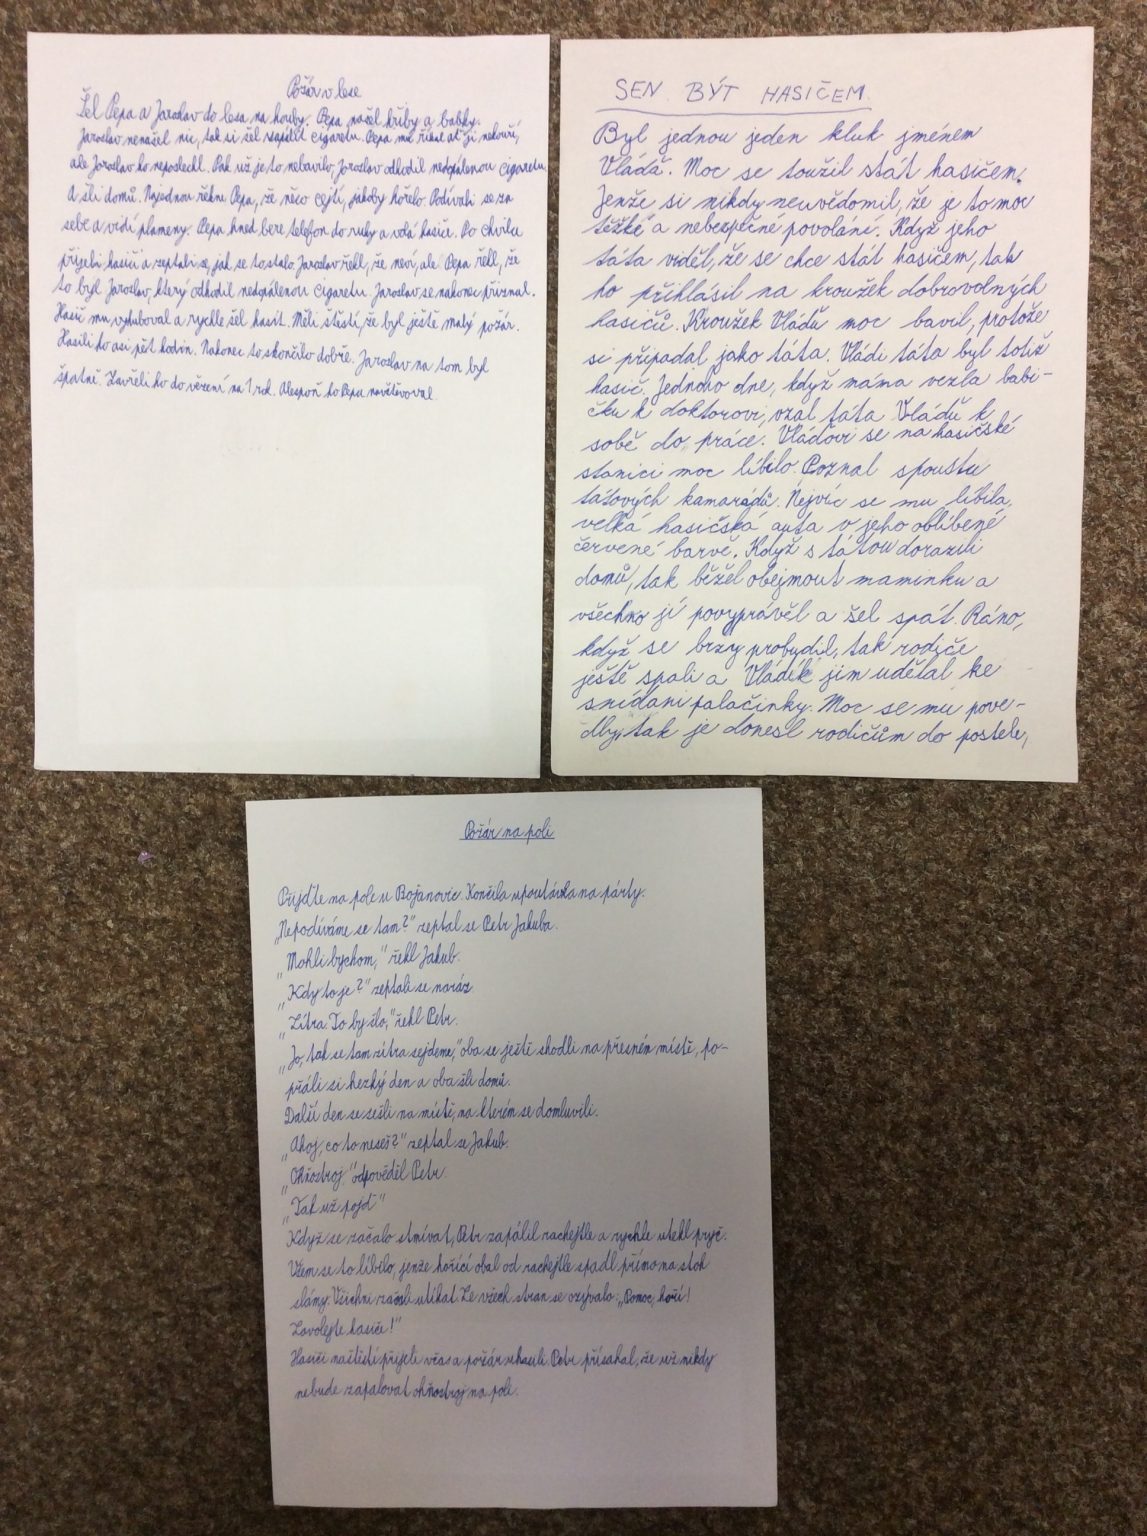 Požár v lese
Šel Pepa a Jaroslav do lesa na houby. Pepa našel hřiby a babky.
Jaroslav nenašel nic, tak si šel zapálit cigaretu. Pepa mu říkal ať ji nekouří,
ale Jaroslav ho neposlechl. Pak už je to nebavilo, Jaroslav odhodil nedopálenou cigaretu
A šli domů. Najednou řekne Pepa, že něco cejtí, jakoby hořelo. Podívali se za
sebe a vidí plameny. Pepa hned bere telefon do ruky a volá hasiče. Po chvilce
přijeli hasiči a zeptali se, jak se to stalo. Jaroslav řekl, že neví, ale Pepa řekl, že
to byl Jaroslav, který odhodil nedopálenou cigaretu. Jaroslav se nakonec přiznal.
Hasič mu vyhuboval a rychle šel hasit. Měli štěstí, že byl ještě malý požár.
Hasili ho asi pět hodin. Nakonec to skončilo dobře. Jaroslav na tom byl
špatně. Zavřeli ho do vězení na 1 rok. Alespoň ho Pepa navštěvoval.
SEN BÝT HASIČEM.
Byl jednou jeden kluk jménem
Vláďa. Moc se toužil stát hasičem.
Jenže si nikdy neuvědomil, že je to moc
těžké a nebezpečné povolání. Když jeho
táta viděl, že se chce stát hasičem, tak
ho přihlásil na kroužek dobrovolných
hasičů. Kroužek Vláďu moc bavil, protože
si připadal jako táta. Vládi táta byl totiž
hasič. Jednoho dne, když máma vezla babi-
čku k doktorovi, vzal táta Vláďu k
sobě do práce. Vláďovi se na hasičské
stanici moc líbilo. Poznal spoustu
tátových kamarádů. Nejvíc se mu líbila
velká hasičská auta v jeho oblíbené
červené barvě. Když s tátou dorazili
domů, tak běžel obejmout maminku a
všechno jí povyprávěl a šel spát. Ráno,
když se brzy probudil, tak rodiče
ještě spali a Vládík jim udělal ke
snídani palačinky. Moc se mu pove-
dly, tak je donesl rodičům do postele,
Požár na poli
Přijďte na pole u Bojanovic. Končila upoutávka na párty.
„Nepodíváme se tam?" zeptal se Petr Jakuba.
„Mohli bychom," řekl Jakub.
„Kdy to je?" zeptali se naráz
„Zítra. To by šlo," řekl Petr.
„Jo, tak se tam zítra sejdeme," oba se ještě shodli na přesném místě, po-
přáli si hezký den a oba šli domů.
Další den se sešli na místě, na kterém se domluvili.
„Ahoj, co to neseš?" zeptal se Jakub.
„Ohňostroj," odpověděl Petr.
„Tak už pojď"
Když se začalo stmívat, Petr zapálil rachejtle a rychle utekl pryč.
Všem se to líbilo, jenže hořící obal od rachejtle spadl přímo na stoh
slámy. Všichni začali utíkat. Ze všech stran se ozývalo: „Pomoc, hoří!
Zavolejte hasiče!"
Hasiči naštěstí přijeli včas a požár uhasili. Petr přísahal, že už nikdy
nebude zapalovat ohňostroj na poli.